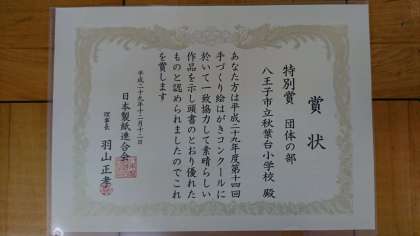 賞状
特別賞 団体の部
八王子市立秋葉台小学校 殿
あなた方は平成二十九年度第十四回
手づくり絵はがきコンクールに
於いて一致協力して素晴らしい
作品を示し頭書のとおり優れた
ものと認められましたのでこれ
を賞します
平成二十九年十二月十二日
日本製紙連合会
理事長 羽山正孝